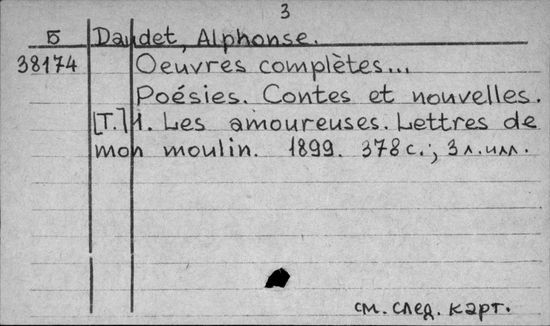 3
Б Daudet, Alphonse.
38174 Oeuvres complètes...
Poésies. Contes et nouvelles.
[T.] 1. Les amoureuses. Lettres de
mon moulin. 1899. 378 с.; 3 л. илл.
см. след. карт.